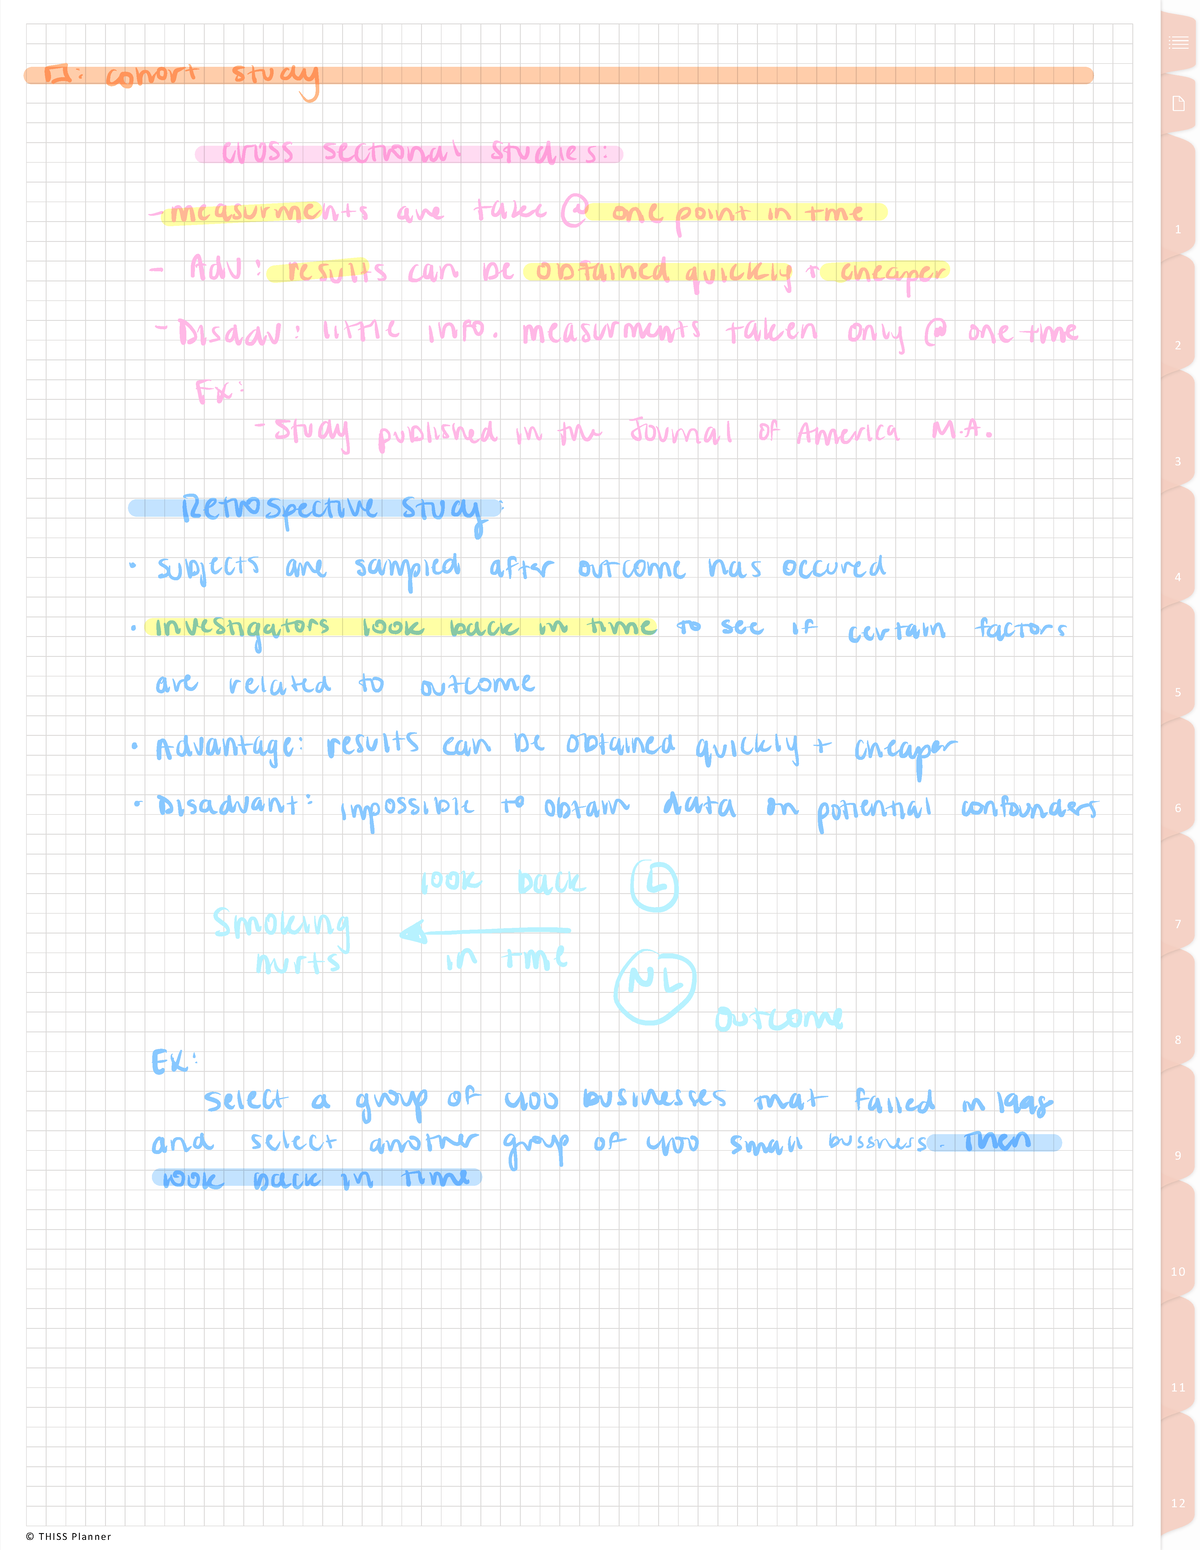 : cohort study
cross sectional studies:
- measurments are take @ one point in tme
- Adv: results can be obtained quickly + cheaper
- Disadv: little info. measurments taken only @ one tme
Ex:
- Study published in the Journal of America M.A.
Retrospective study
• subjects are sampled after outcome has occured
• investigators look back in time to see if certain factors
are related to outcome
• Advantage: results can be obtained quickly + cheaper
• Disadvant: impossible to obtain data on potential confounders
look back L
Smoking
hurts in tme
NL
outcome
Ex:
select a group of 400 businesses that failed in 1998
and select another group of 400 small bussiness. Then
look back in time
1
2
3
4
5
6
7
8
9
10
11
12
© THISS Planner